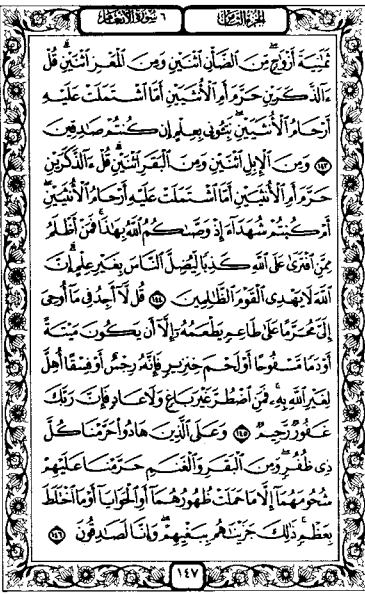 الجزء الثامن
٦ سورة الأنعام
ثَمَٰنِيَةَ أَزْوَٰجٍ مِّنَ ٱلضَّأْنِ ٱثْنَيْنِ وَمِنَ ٱلْمَعْزِ ٱثْنَيْنِ قُلْ
ءَآلذَّكَرَيْنِ حَرَّمَ أَمِ ٱلْأُنثَيَيْنِ أَمَّا ٱشْتَمَلَتْ عَلَيْهِ
أَرْحَامُ ٱلْأُنثَيَيْنِ نَبِّـُٔونِى بِعِلْمٍ إِن كُنتُمْ صَٰدِقِينَ
١٤٣ وَمِنَ ٱلْإِبِلِ ٱثْنَيْنِ وَمِنَ ٱلْبَقَرِ ٱثْنَيْنِ قُلْ ءَآلذَّكَرَيْنِ
حَرَّمَ أَمِ ٱلْأُنثَيَيْنِ أَمَّا ٱشْتَمَلَتْ عَلَيْهِ أَرْحَامُ ٱلْأُنثَيَيْنِ
أَمْ كُنتُمْ شُهَدَآءَ إِذْ وَصَّىٰكُمُ ٱللَّهُ بِهَٰذَا فَمَنْ أَظْلَمُ
مِمَّنِ ٱفْتَرَىٰ عَلَى ٱللَّهِ كَذِبًا لِّيُضِلَّ ٱلنَّاسَ بِغَيْرِ عِلْمٍ إِنَّ
ٱللَّهَ لَا يَهْدِى ٱلْقَوْمَ ٱلظَّٰلِمِينَ ١٤٤ قُل لَّآ أَجِدُ فِى مَآ أُوحِىَ
إِلَىَّ مُحَرَّمًا عَلَىٰ طَاعِمٍ يَطْعَمُهُۥٓ إِلَّآ أَن يَكُونَ مَيْتَةً
أَوْ دَمًا مَّسْفُوحًا أَوْ لَحْمَ خِنزِيرٍ فَإِنَّهُۥ رِجْسٌ أَوْ فِسْقًا أُهِلَّ
لِغَيْرِ ٱللَّهِ بِهِۦ فَمَنِ ٱضْطُرَّ غَيْرَ بَاغٍ وَلَا عَادٍ فَإِنَّ رَبَّكَ
غَفُورٌ رَّحِيمٌ ١٤٥ وَعَلَى ٱلَّذِينَ هَادُوا۟ حَرَّمْنَا كُلَّ
ذِى ظُفُرٍ وَمِنَ ٱلْبَقَرِ وَٱلْغَنَمِ حَرَّمْنَا عَلَيْهِمْ
شُحُومَهُمَآ إِلَّا مَا حَمَلَتْ ظُهُورُهُمَآ أَوِ ٱلْحَوَايَآ أَوْ مَا ٱخْتَلَطَ
بِعَظْمٍ ذَٰلِكَ جَزَيْنَٰهُم بِبَغْيِهِمْ وَإِنَّا لَصَٰدِقُونَ ١٤٦
١٤٧